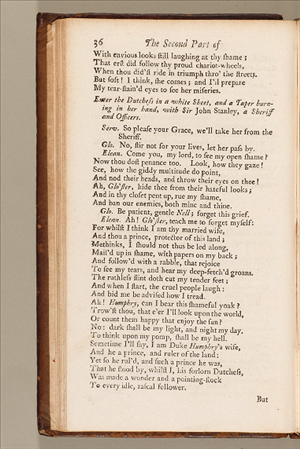 36 The Second Part of
With envious looks still laughing at thy shame;
That erst did follow thy proud chariot-wheels,
When thou did'st ride in triumph thro' the streets.
But soft! I think, she comes; and I'll prepare
My tear-stain'd eyes to see her miseries.
Enter the Dutchess in a white Sheet, and a Taper burn-
ing in her hand, with Sir John Stanley, a Sheriff
and Officers.
Serv. So please your Grace, we'll take her from the
Sheriff.
Glo. No, stir not for your lives, let her pass by.
Elean. Come you, my lord, to see my open shame?
Now thou dost penance too. Look, how they gaze!
See, how the giddy multitude do point,
And nod their heads, and throw their eyes on thee!
Ah, Glo'ster, hide thee from their hateful looks;
And in thy closet pent up, rue my shame,
And ban our enemies, both mine and thine.
Glo. Be patient, gentle Nell; forget this grief.
Elean. Ah! Glo'ster, teach me to forget myself:
For whilst I think I am thy married wife,
And thou a prince, protector of this land;
Methinks, I should not thus be led along,
Mail'd up in shame, with papers on my back;
And follow'd with a rabble, that rejoice
To see my tears, and hear my deep-fetch'd groans.
The ruthless flint doth cut my tender feet;
And when I start, the cruel people laugh:
And bid me be advised how I tread.
Ah! Humphry, can I bear this shameful yoak?
Trow'st thou, that e'er I'll look upon the world,
Or count them happy that enjoy the sun?
No: dark shall be my light, and night my day.
To think upon my pomp, shall be my hell.
Sometime I'll say, I am Duke Humphry's wife,
And he a prince, and ruler of the land:
Yet so he rul'd, and such a prince he was,
That he stood by, whilst I, his forlorn Dutchess,
Was made a wonder and a pointing-stock
To every idle, rascal follower.
But